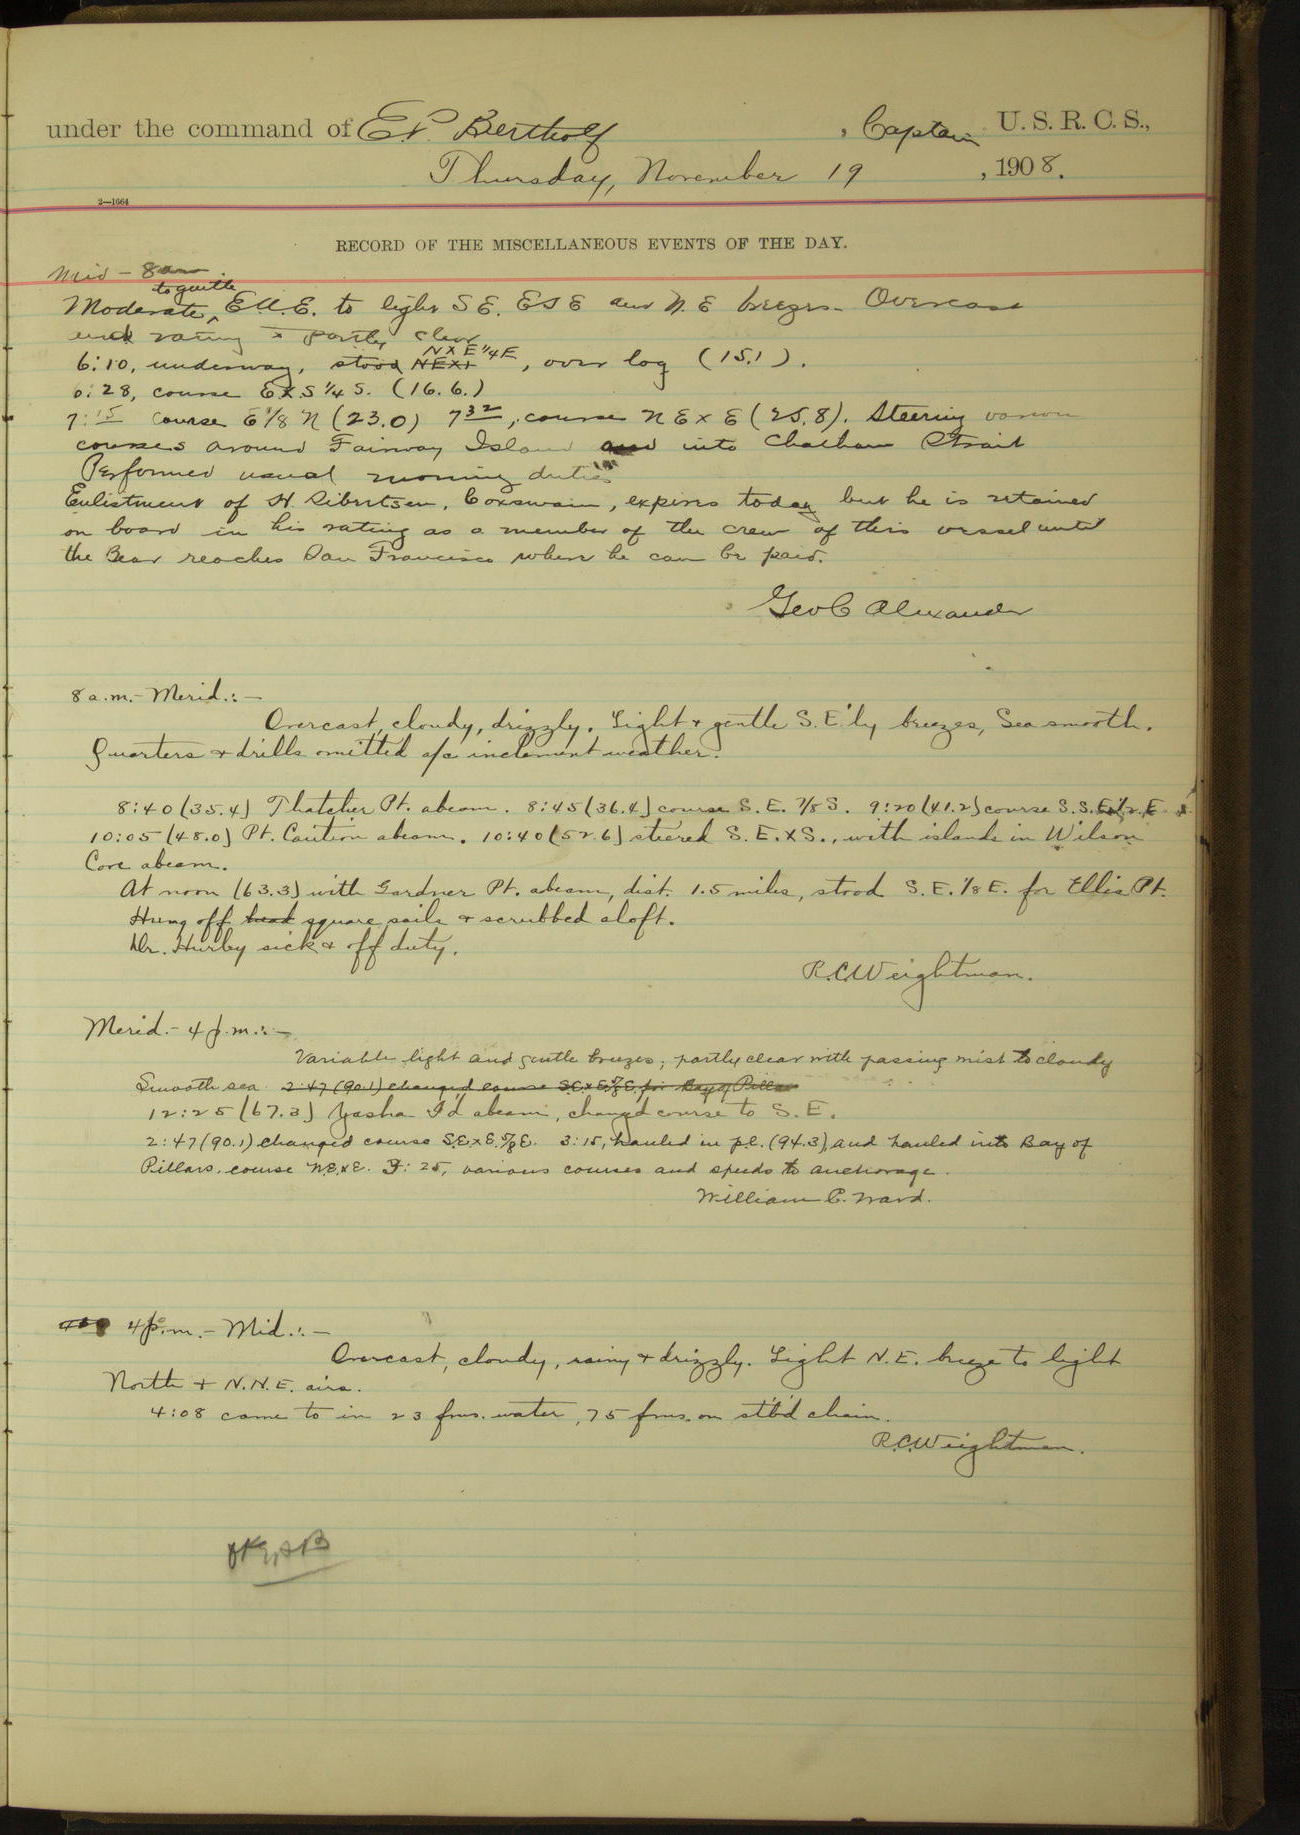 under the command of E.P. Bertholf, Captain U. S. R. C. S.,
Thursday, November 19, 1908.
2—1664
RECORD OF THE MISCELLANEOUS EVENTS OF THE DAY.
Mid - 8 am
to gentle
Moderate E.N.E. to light S E. ESE and N.E breezes. Overcast
and & partly clear
N X E 1/4 E
6:10, underway, stood NEXE, over log (15.1).
6:28, course EXS 1/4 S. (16.6.)
7:15 course E 1/8 N (23.0) 7 32, course N E x E (25.8). Steering various
courses around Fairway Island and into Chatham Strait
Performed usual morning duties
Enlistment of H. Sibertsen, Coxswain, expires today but he is retained
on board in his rating as a member of the crew of this vessel until
the Bear reaches San Francisco where he can be paid.
Geo C Alexander
8 a.m. - Merid.: -
Overcast, cloudy, drizzly. Light & gentle S.E'ly breezes, Sea smooth.
Quarters & drills omitted a/c inclement weather.
8:40 (35.4) Thatcher Pt. abeam. 8:45 (36.4) course S. E. 7/8 S. 9:20 (41.2) course S.S.E. 1/2 E
10:05 (48.0) Pt. Caution abeam. 10:40 (52.6) steered S. E. X S., with islands in Wilson
Cove abeam.
At noon (63.3) with Gardner Pt. abeam, dist. 1.5 miles, stood S. E. 1/8 E. for Ellis Pt.
Hung off head square sails & scrubbed aloft.
Dr. Hurley sick & off duty.
R.C. Weightman.
Merid. - 4 p.m.: -
Variable light and gentle breezes; partly clear with passing mist to cloudy
Smooth sea. 2:47 (90.1) changed course S.E. x E. 5/8 E. for Bay of Pillars
12:25 (67.3) Yasha I'd abeam, changed course to S. E.
2:47 (90.1) changed course S.E. x E. 5/8 E. 3:15, hauled in p.l. (94.3), and hauled into Bay of
Pillars, course N.E. x E. 3:25, various courses and speeds to anchorage.
William C. Ward.
4 p.m. - Mid.: -
Overcast, cloudy, rainy & drizzly. Light N. E. breeze to light
North & N.N.E. airs.
4:08 came to in 23 fms. water, 75 fms. on stb'd chain.
R.C. Weightman.
OK EPB